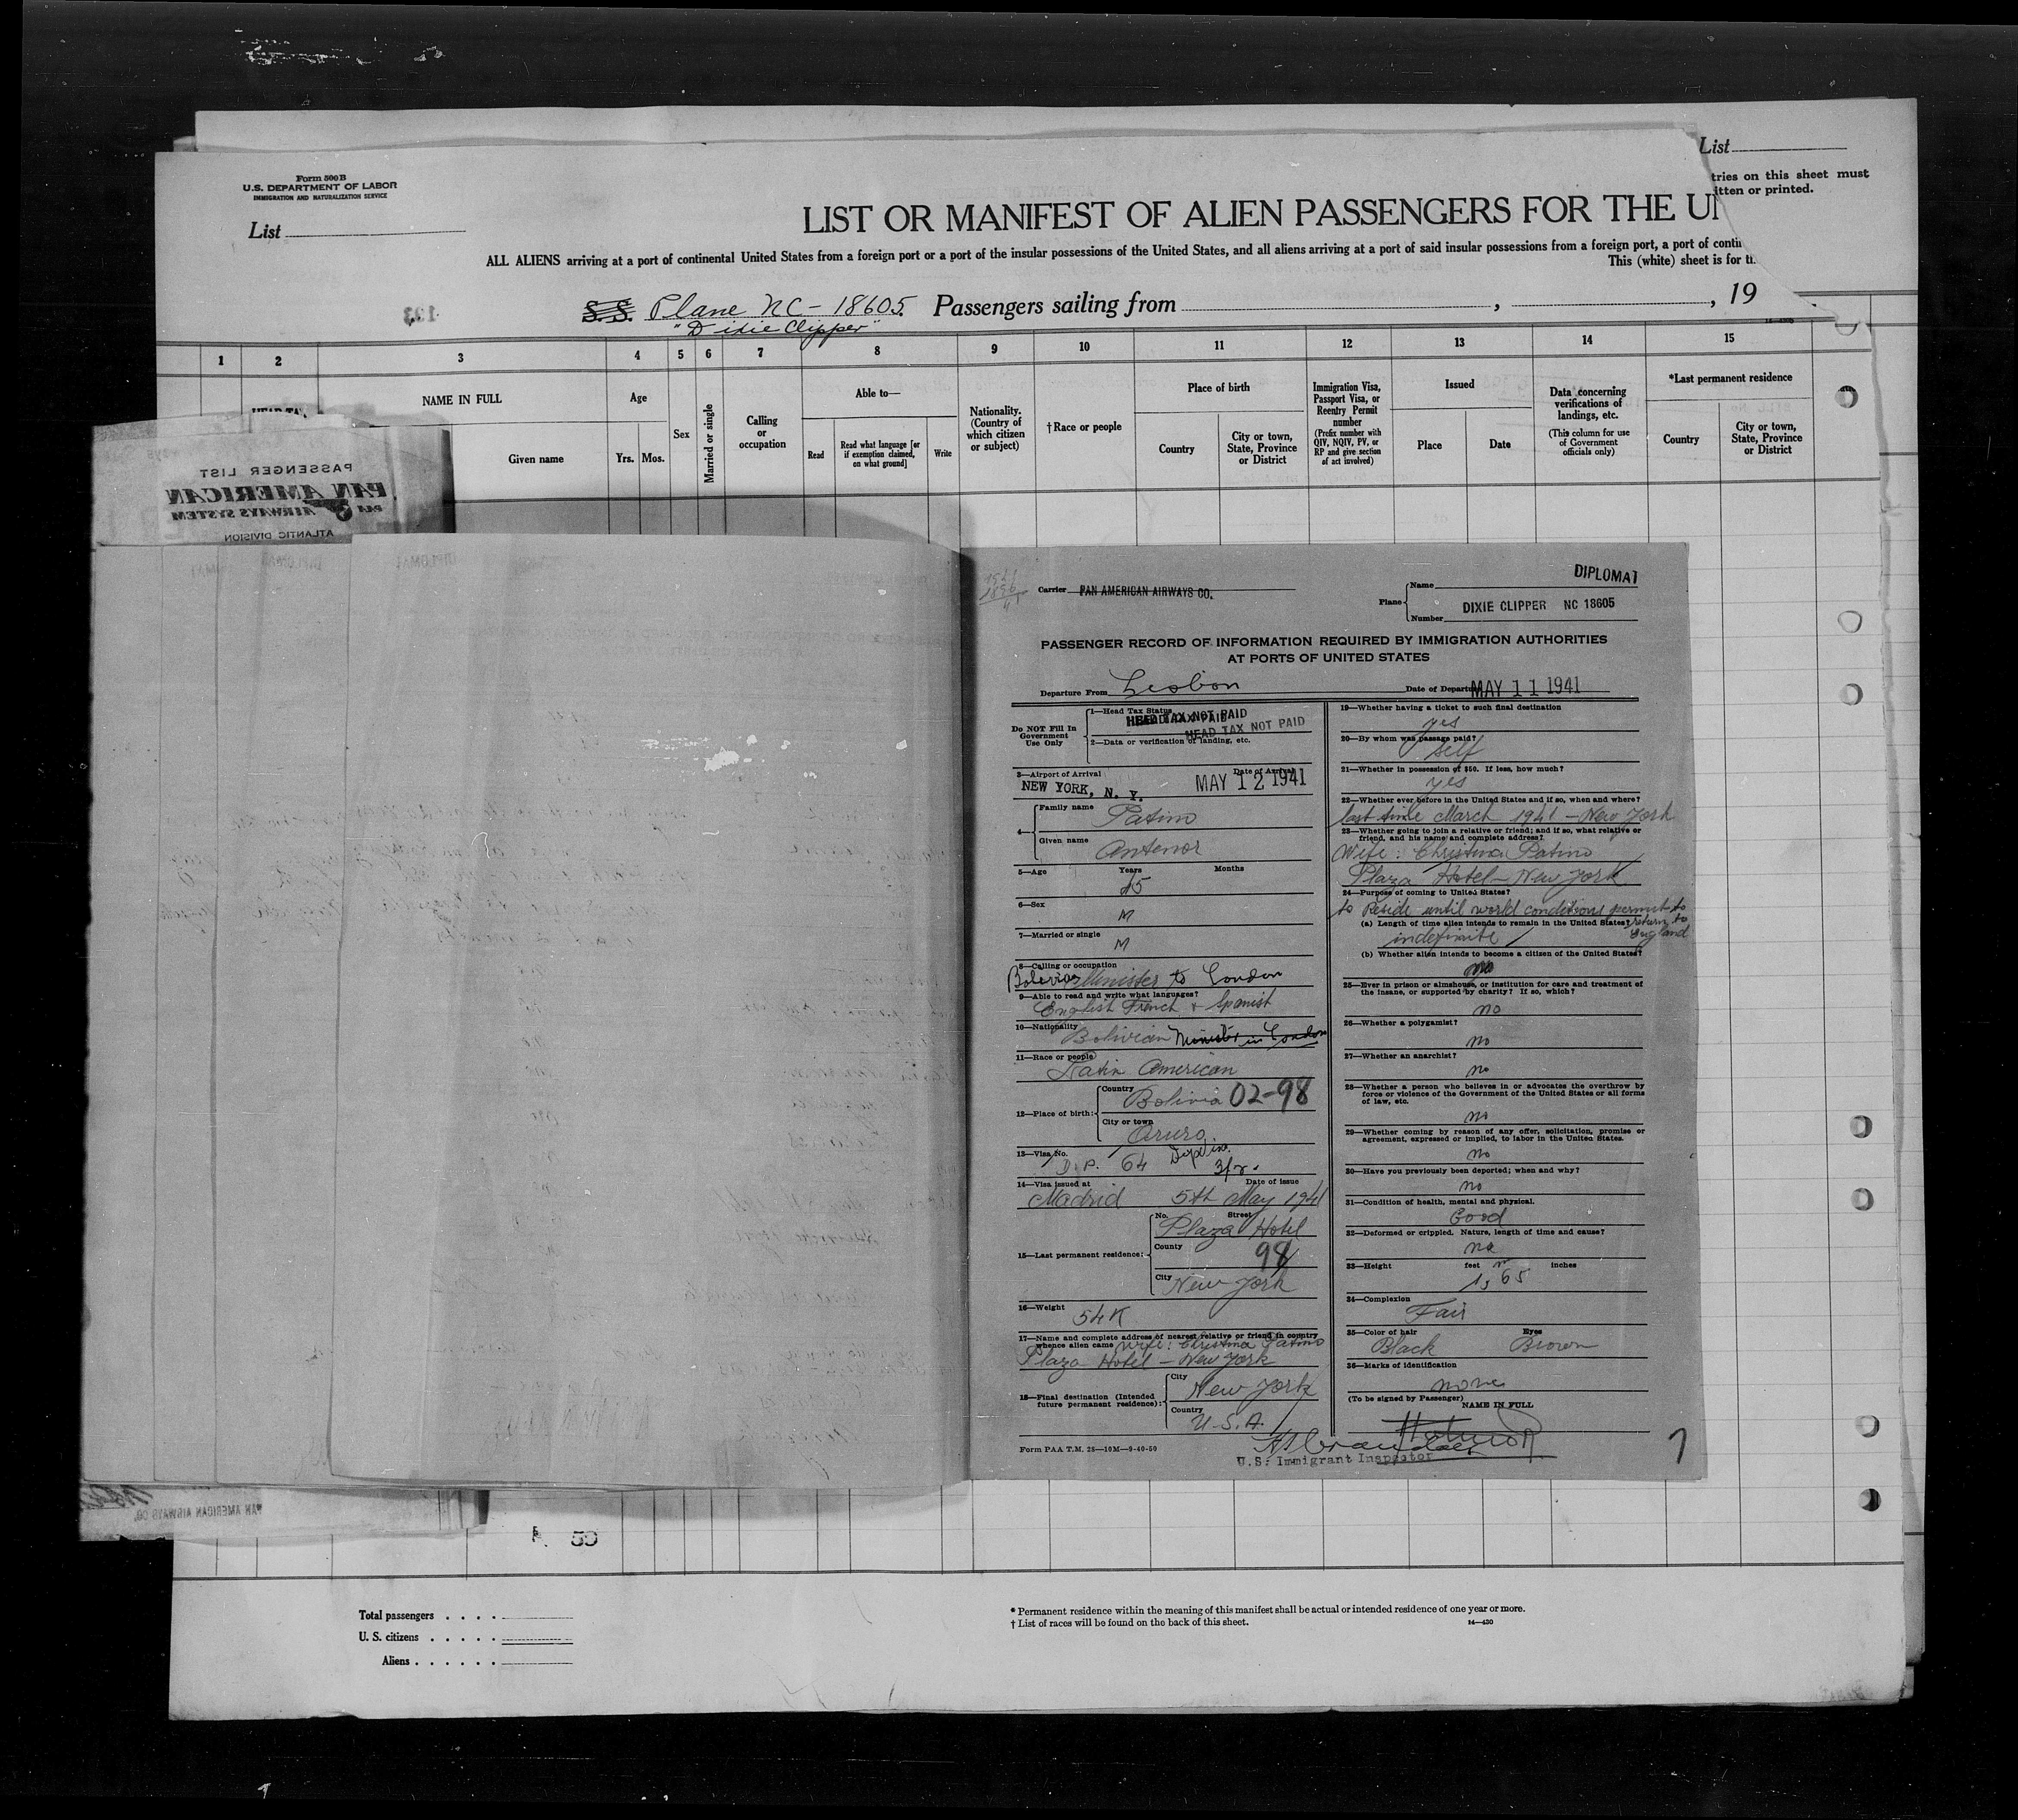 Form 500 B
U.S. DEPARTMENT OF LABOR
IMMIGRATION AND NATURALIZATION SERVICE
List
List
tries on this sheet must
itten or printed.
LIST OR MANIFEST OF ALIEN PASSENGERS FOR THE UN
ALL ALIENS arriving at a port of continental United States from a foreign port or a port of the insular possessions of the United States, and all aliens arriving at a port of said insular possessions from a foreign port, a port of contin
This (white) sheet is for t
S.S. Plane NC-18605. Passengers sailing from , , 19
"Dixie Clipper"
1 2 3 4 5 6 7 8 9 10 11 12 13 14 15
HEAD TA
NAME IN FULL
Given name
Age
Yrs. Mos.
Sex
Married or single
Calling
or
occupation
Able to—
Read
Read what language [or
if exemption claimed,
on what ground]
Write
Nationality.
(Country of
which citizen
or subject)
†Race or people
Place of birth
Country
City or town,
State, Province
or District
Immigration Visa,
Passport Visa, or
Reentry Permit
number
(Prefix number with
QIV, NQIV, PV, or
RP and give section
of act involved)
Issued
Place
Date
Data concerning
verifications of
landings, etc.
(This column for use
of Government
officials only)
*Last permanent residence
Country
City or town,
State, Province
or District
PASSENGER LIST
PAN AMERICAN
PAA AIRWAYS SYSTEM
ATLANTIC DIVISION
DIPLOMAT
Carrier PAN AMERICAN AIRWAYS CO.
Plane
Name
DIXIE CLIPPER NC 18605
Number
PASSENGER RECORD OF INFORMATION REQUIRED BY IMMIGRATION AUTHORITIES
AT PORTS OF UNITED STATES
Departure From Lisbon
Date of Departure MAY 11 1941
Do NOT Fill In
Government
Use Only
1—Head Tax Status
HEAD TAX NOT PAID
HEAD TAX NOT PAID
2—Data or verification of landing, etc.
3—Airport of Arrival Date of Arrival
NEW YORK, N. Y. MAY 12 1941
4— Family name
Patino
Given name
Antenor
5—Age Years Months
45
6—Sex
M
7—Married or single
M
8—Calling or occupation
Bolivian Minister to London
9—Able to read and write what languages?
English French & Spanish
10—Nationality
Bolivian Minister in London
11—Race or people
Latin American
12—Place of birth:
Country
Bolivia 02-98
City or town
Oruro
13—Visa No.
D.P. 64
14—Visa issued at Date of issue
Madrid 5th May 1941
15—Last permanent residence:
No. Street
Plaza Hotel
County
98
City
New York
16—Weight
54 K
17—Name and complete address of nearest relative or friend in country
whence alien came Wife: Christina Patino
Plaza Hotel — New York
18—Final destination (Intended
future permanent residence):
City
New York
Country
U.S.A.
Form PAA T.M. 28—10M—9-40-50
19—Whether having a ticket to such final destination
yes
20—By whom was passage paid?
Self
21—Whether in possession of $50. If less, how much?
yes
22—Whether ever before in the United States and if so, when and where?
last time March 1941 — New York
23—Whether going to join a relative or friend; and if so, what relative or
friend, and his name and complete address?
Wife: Christina Patino
Plaza Hotel — New York
24—Purpose of coming to United States?
to Reside until world conditions permit to
return to
England
(a) Length of time alien intends to remain in the United States?
indefinite
(b) Whether alien intends to become a citizen of the United States?
no
25—Ever in prison or almshouse, or institution for care and treatment of
the insane, or supported by charity? If so, which?
no
26—Whether a polygamist?
no
27—Whether an anarchist?
no
28—Whether a person who believes in or advocates the overthrow by
force or violence of the Government of the United States or all forms
of law, etc.
no
29—Whether coming by reason of any offer, solicitation, promise or
agreement, expressed or implied, to labor in the United States.
no
30—Have you previously been deported; when and why?
no
31—Condition of health, mental and physical.
Good
32—Deformed or crippled. Nature, length of time and cause?
no
33—Height feet inches
1,65 m
34—Complexion
Fair
35—Color of hair Eyes
Black Brown
36—Marks of identification
none
(To be signed by Passenger)
NAME IN FULL
U.S. Immigrant Inspector
7
PAN AMERICAN AIRWAYS CO.
Total passengers . . . .
U. S. citizens . . . . .
Aliens . . . . . .
* Permanent residence within the meaning of this manifest shall be actual or intended residence of one year or more.
† List of races will be found on the back of this sheet.
14—430